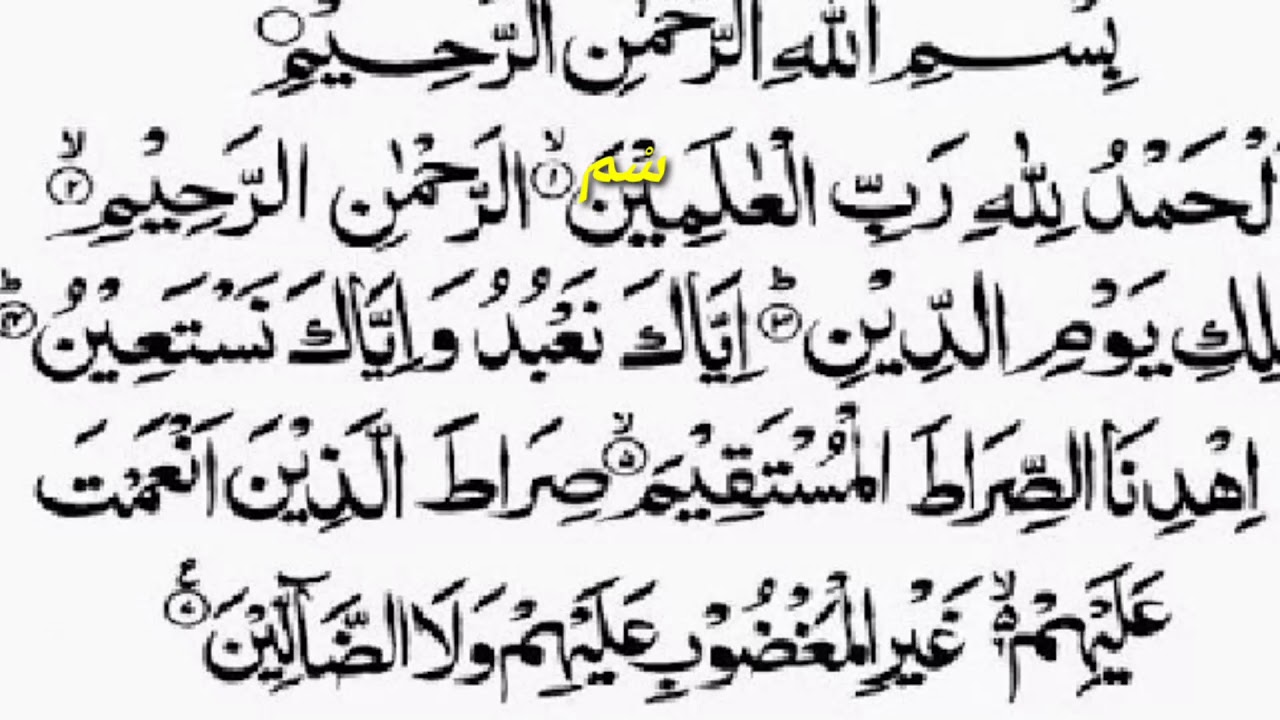 بِسْمِ اللهِ الرَّحْمٰنِ الرَّحِيْمِ
لْحَمْدُ لِلّٰهِ رَبِّ الْعٰلَمِيْنَ ۙ﴿۱﴾ الرَّحْمٰنِ الرَّحِيْمِ ۙ﴿۲﴾
سْم
لِكِ يَوْمِ الدِّيْنِ ؕ﴿۳﴾ اِيَّاكَ نَعْبُدُ وَاِيَّاكَ نَسْتَعِيْنُ ؕ﴿۴﴾
اِهْدِنَا الصِّرَاطَ الْمُسْتَقِيْمَ ۙ﴿۵﴾ صِرَاطَ الَّذِيْنَ اَنْعَمْتَ
عَلَيْهِمْ ۙ۵ غَيْرِ الْمَغْضُوْبِ عَلَيْهِمْ وَلَا الضَّآلِّيْنَ